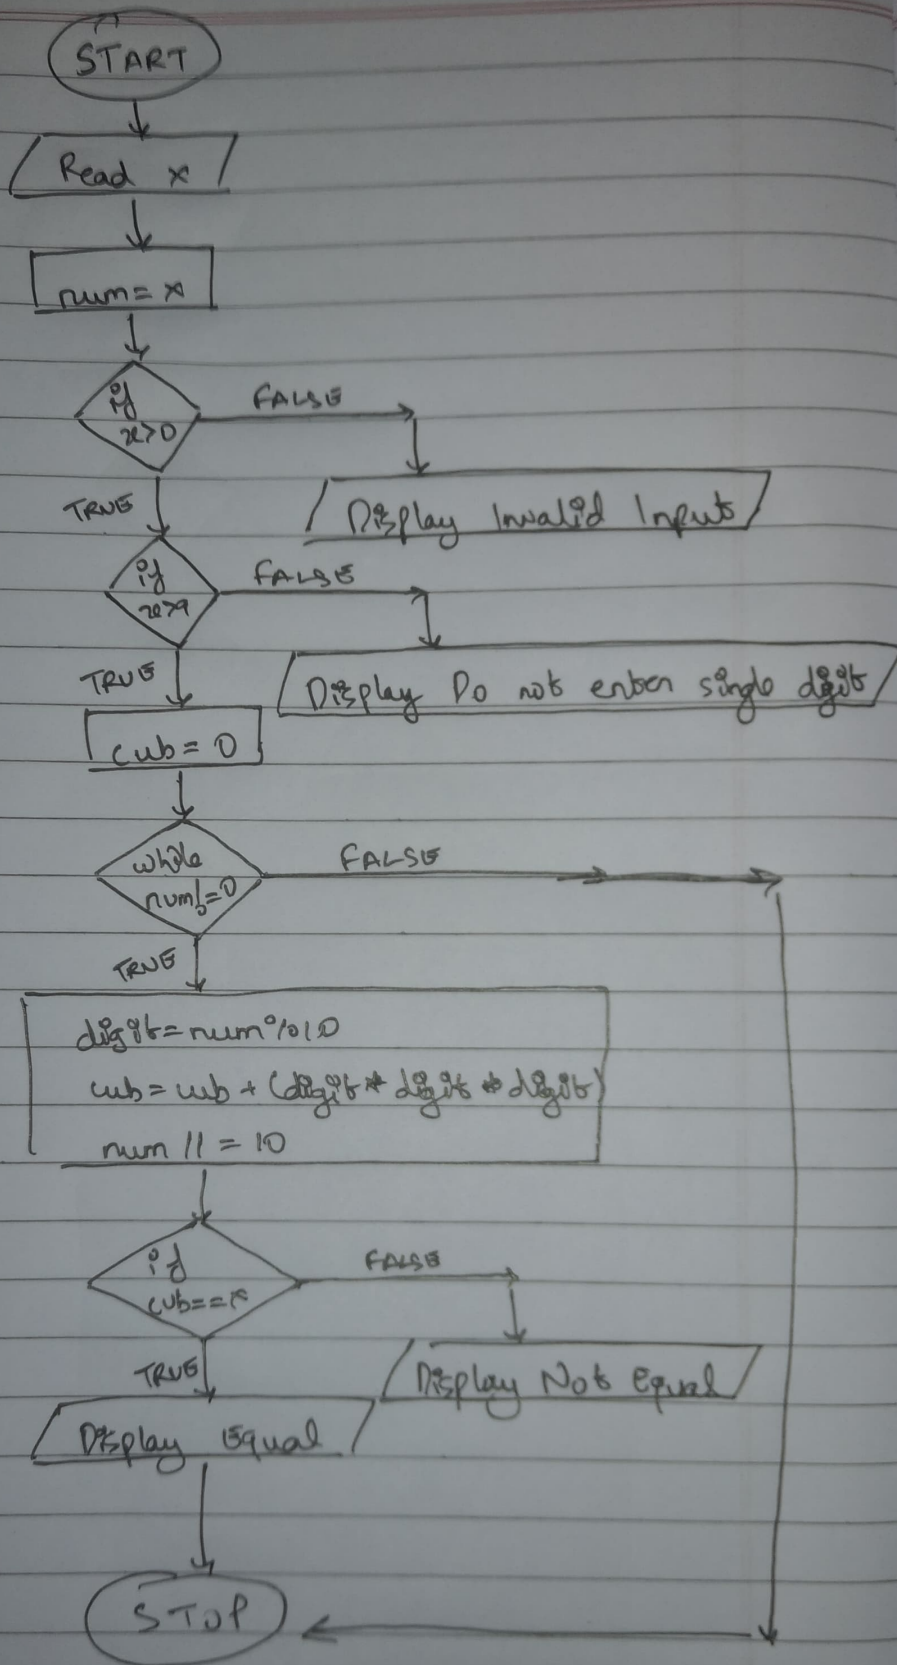 START
Read x
num = x
if
x>0
FALSE
TRUE
Display Invalid Input
if
x>9
FALSE
TRUE
Display Do not enter single digit
cub = 0
while
num!=0
FALSE
TRUE
digit = num%10
cub = cub + (digit * digit * digit)
num // = 10
if
cub==x
FALSE
TRUE
Display Not Equal
Display Equal
STOP